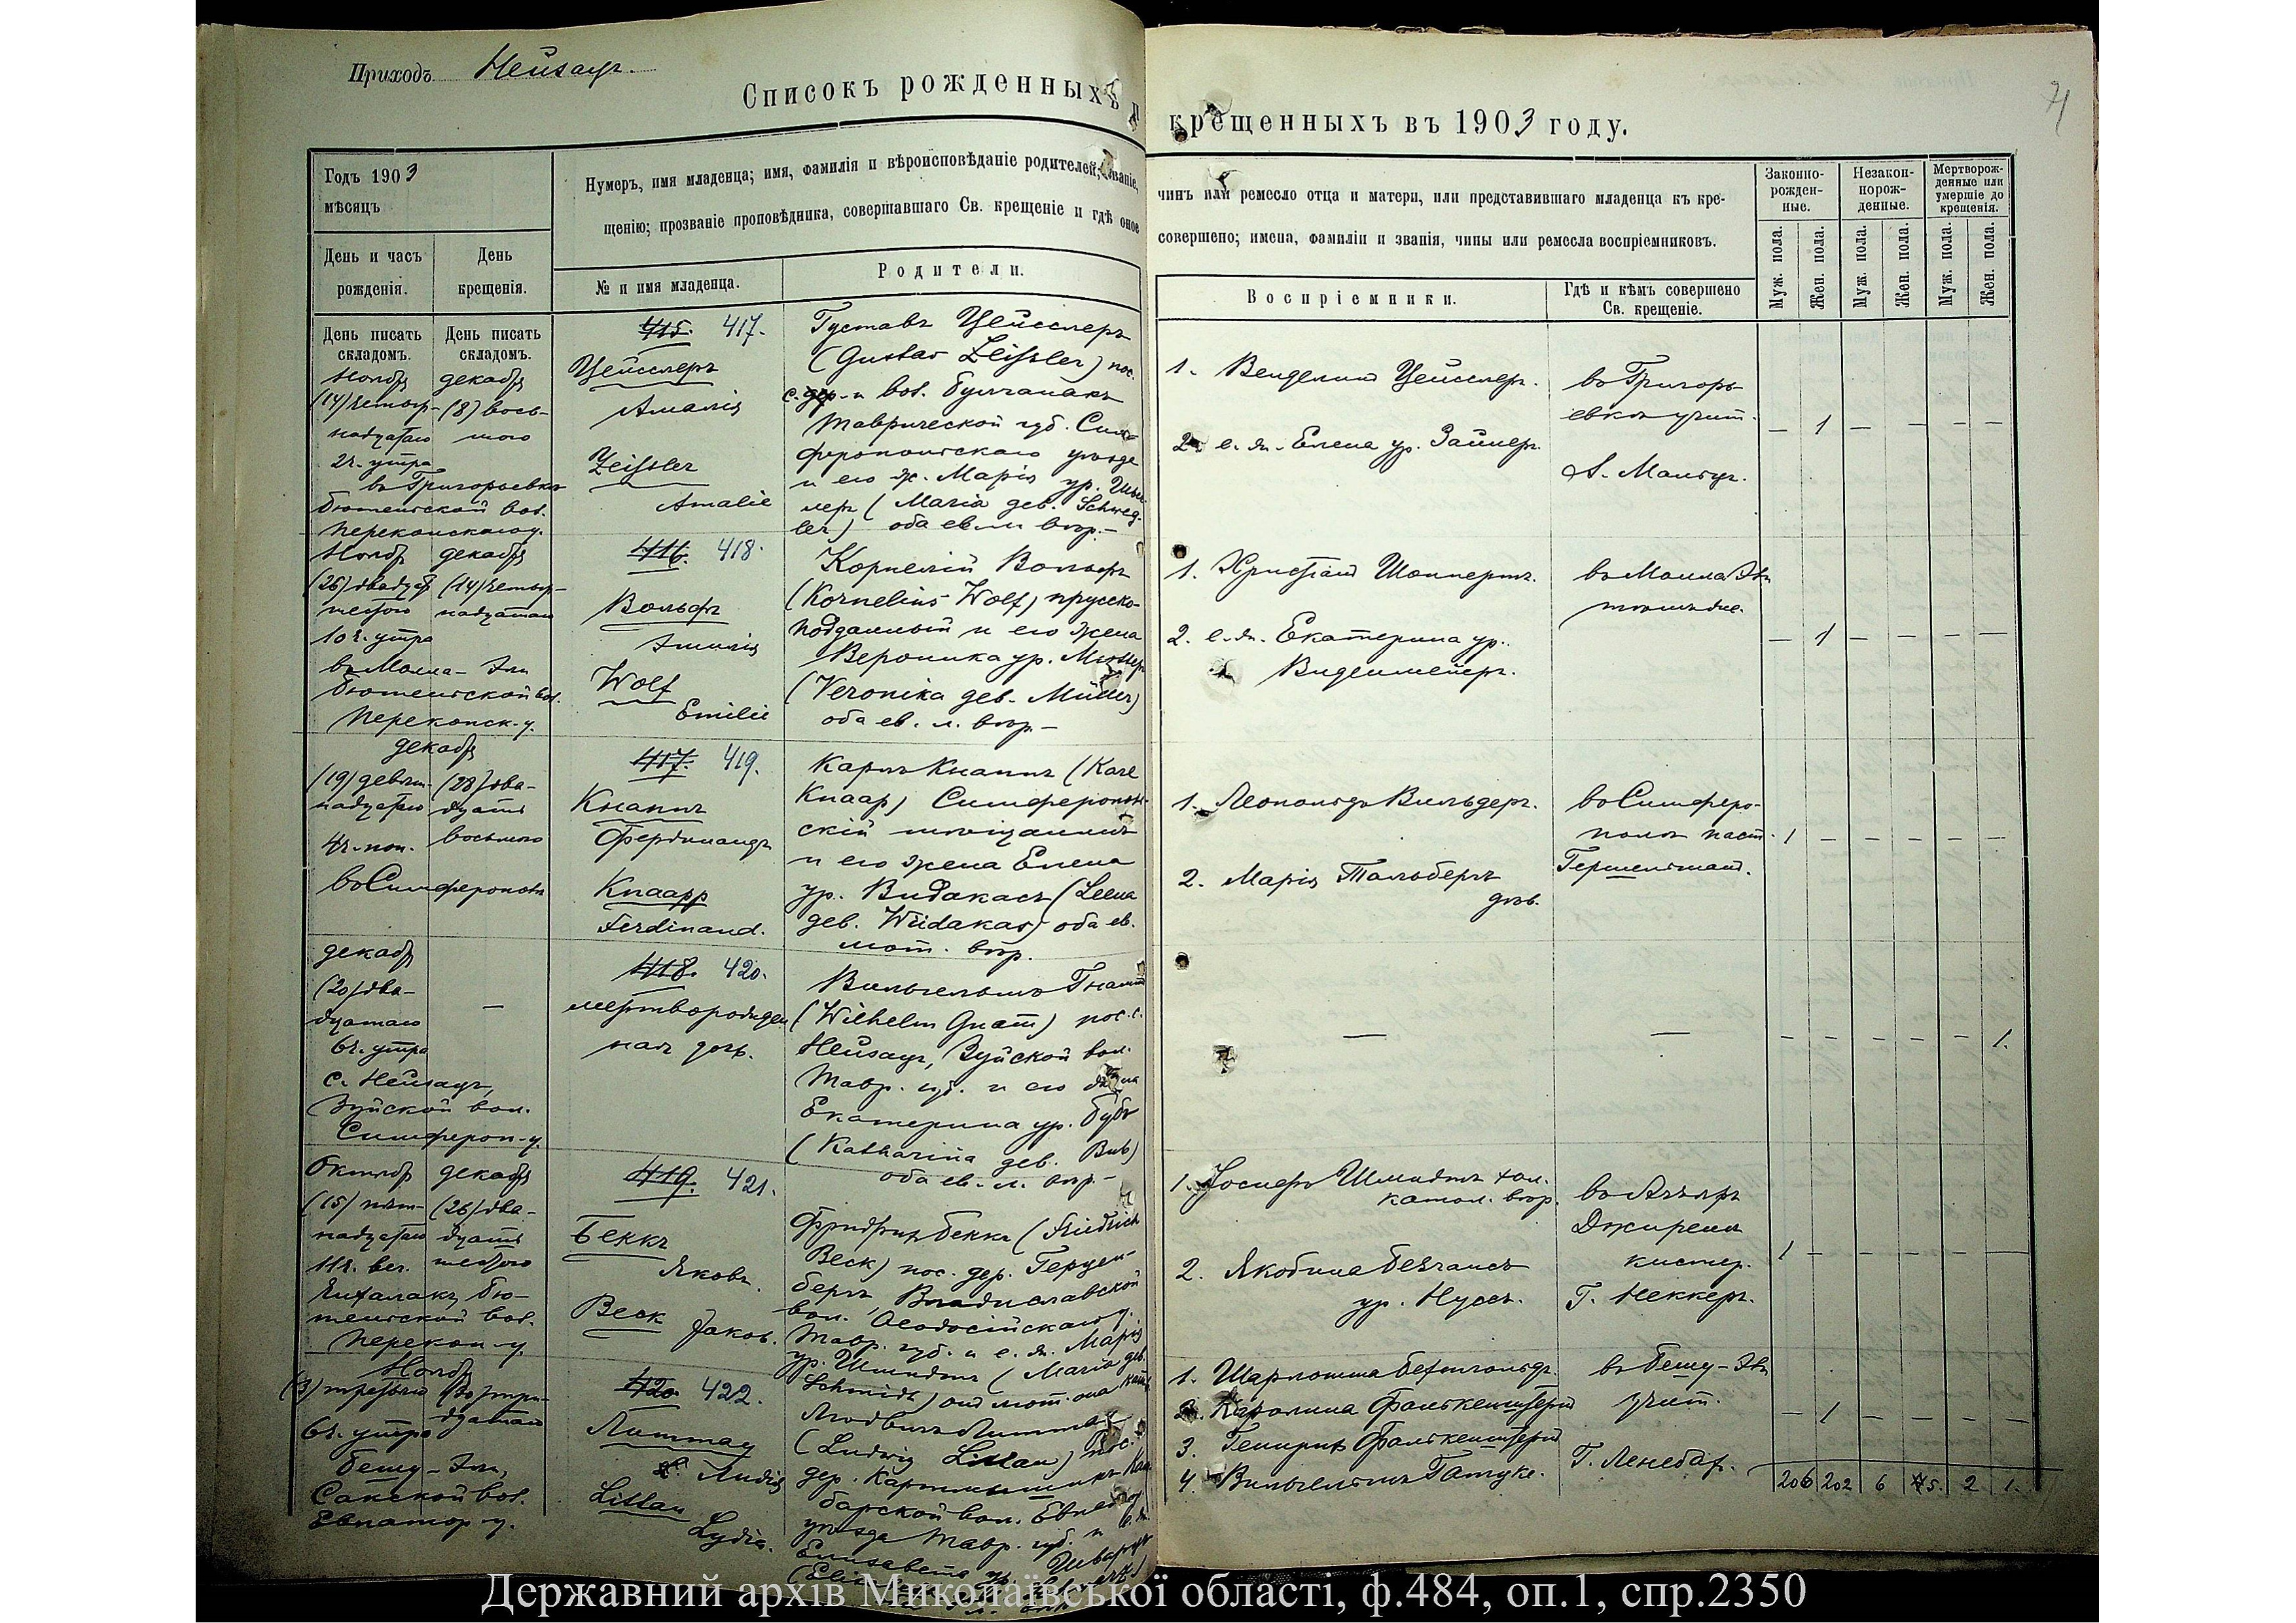 Приходъ Нейзацъ.
Списокъ рожденныхъ и крещенныхъ въ 1903 году.
71
Годъ 1903
мѣсяцъ
Нумеръ, имя младенца; имя, фамилія и вѣроисповѣданіе родителей; званіе,
чинъ или ремесло отца и матери, или представившаго младенца къ кре-
щенію; прозваніе проповѣдника, совершавшаго Св. крещеніе и гдѣ оное
совершено; имена, фамиліи и званія, чины или ремесла воспріемниковъ.
Законно-
рожден-
ные.
Незакон-
норож-
денные.
Мертворож-
денные или
умершіе до
крещенія.
День и часъ
рожденія.
День
крещенія.
№ и имя младенца.
Родители.
Воспріемники.
Гдѣ и кѣмъ совершено
Св. крещеніе.
Муж. пола.
Жен. пола.
Муж. пола.
Жен. пола.
Муж. пола.
Жен. пола.
День писать
складомъ.
День писать
складомъ.
Ноября
(14) четыр-
надцатаго
2 ч. утра
въ Григорьевкѣ
Бютенской вол.
Перекопскаго у.
декабря
(8) вось-
мого
415. 417.
Цейсслеръ
Амалія
Zeissler
Amalie
Густавъ Цейсслеръ
(Gustav Zeissler) пос.
с. и вол. Булганакъ
Таврической губ. Сим-
феропольскаго уѣзда
и его ж. Марія ур. Швег-
леръ (Maria geb. Schweg-
ler) оба ев. л. вѣр.
1. Венделинъ Цейсслеръ.
2. е. ж. Елена ур. Зайлеръ.
въ Григорь-
евкѣ учит.
А. Мантцъ.
— 1 — — — —
Ноября
(26) двадцать
шестого
10 ч. утра
въ Молла-Эли
Бютенской вол.
Перекопск. у.
декабря
(14) четыр-
надцатаго
416. 418.
Вольфъ
Эмилія
Wolf
Emilie
Корнелій Вольфъ
(Kornelius Wolf) прусско-
подданный и его жена
Вероника ур. Мюллеръ
(Veronika geb. Müller)
оба ев. л. вѣр.—
1. Христіанъ Шоппертъ.
2. е. ж. Екатерина ур.
Виденмейеръ.
въ Молла Эли
тотъ-же.
— 1 — — — —
декабря
(19) девят-
надцатаго
4 ч. поп.
въ Симферополѣ
(28) два-
дцать
восьмого
417. 419.
Кнаппъ
Фердинандъ
Knaapp
Ferdinand.
Карлъ Кнаппъ (Karl
Knaap) Симферополь-
скій мѣщанинъ
и его жена Елена
ур. Видакасъ (Leena
geb. Wiidakas) оба ев.
лют. вѣр.
1. Леопольдъ Вильдеръ.
2. Марія Тальбергъ
дѣв.
въ Симферо-
полѣ паст.
Гершельманъ.
1 — — — — —
декабря
(20) два-
дцатаго
6 ч. утра
с. Нейзацъ,
Зуйской вол.
Симфероп. у.
—
418. 420.
мертворожден-
ная дочь.
Вильгельмъ Гнаттъ
(Wilhelm Gnatt) пос. с.
Нейзацъ, Зуйской вол.
Тавр. губ. и его жена
Екатерина ур. Бубъ
(Katharina geb. Bub)
оба ев. л. вѣр.—
—
—
— — — — — 1.
Октября
(15) пят-
надцатаго
11 ч. веч.
Бю-
тенской вол.
Перекоп. у.
декабря
(26) два-
дцать
шестого
419. 421.
Беккъ
Яковъ.
Beck
Jakob.
Фридрихъ Беккъ (Friedrich
Beck) пос. дер. Герцен-
бергъ, Владиславской
вол. Ѳеодосійскаго у.
Тавр. губ. и е. ж. Марія
ур. Шмидтъ (Maria geb.
Schmidt) онъ лют. она кат.
1. Іосифъ Шмидтъ хол.
катол. вѣр.
2. Якобина
ур. Нуссъ.
въ
Джиренъ
кистер.
Г. Неккеръ.
1 — — — — —
Ноября
(3) третьяго
6 ч. утра
Бешу-Эли,
Сакской вол.
Евпатор. у.
(30) три-
дцатаго
420. 422.
Литтау
Лидія
Littau
Lydia.
Людвигъ Литтау
(Ludwig Littau) пос.
дер.
барской вол. Евпатор.
уѣзда Тавр. губ. и е. ж.
Елисавета ур. Шварцъ
1. Шарлотта Бехтгольдъ.
2. Каролина Фалькенштернъ
3. Генрихъ Фалькенштернъ
4. Вильгельмъ Гатцке.
въ Бешу-Эли
учит.
Г. Ленебахъ.
— 1 — — — —
206 202 6 5. 2 1.
Державний архів Миколаївської області, ф.484, оп.1, спр.2350